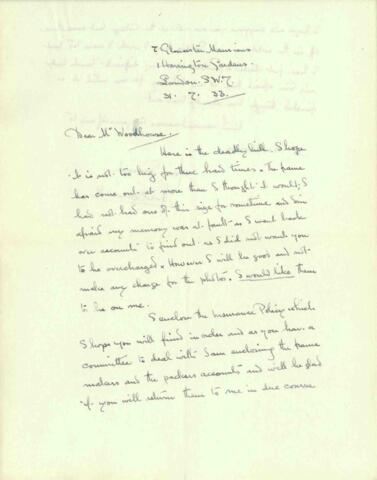 7 Gloucester Mansions
1 Harrington Gardens.
London. S.W.7.
31. 7. 33.
Dear Mr Woodhouse,
Here is the deadly bill. I hope
it is not too big for these hard times. The frame
has come out at more than I thought it would; I
had not had one of this size for sometime and I am
afraid my memory was at fault as I went back
over accounts to find out as I did not want you
to be overcharged. However I will be good and not
make any charge for the photos. I would like them
to be on me.
I enclose the Insurance Policy which
I hope you will find in order and as you have a
committee to deal with I am enclosing the frame
makers and the packers accounts and will be glad
if you will return them to me in due course